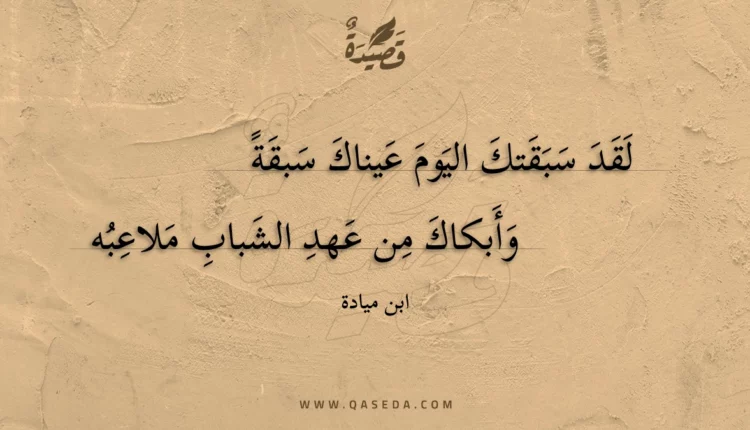 قَصِيْدَةٌ
لَقَدَ سَبَقَتكَ اليَومَ عَيناكَ سَبقَةً
وَأَبكاكَ مِن عَهدِ الشَبابِ مَلاعِبُه
ابن ميادة
WWW.QASEDA.COM